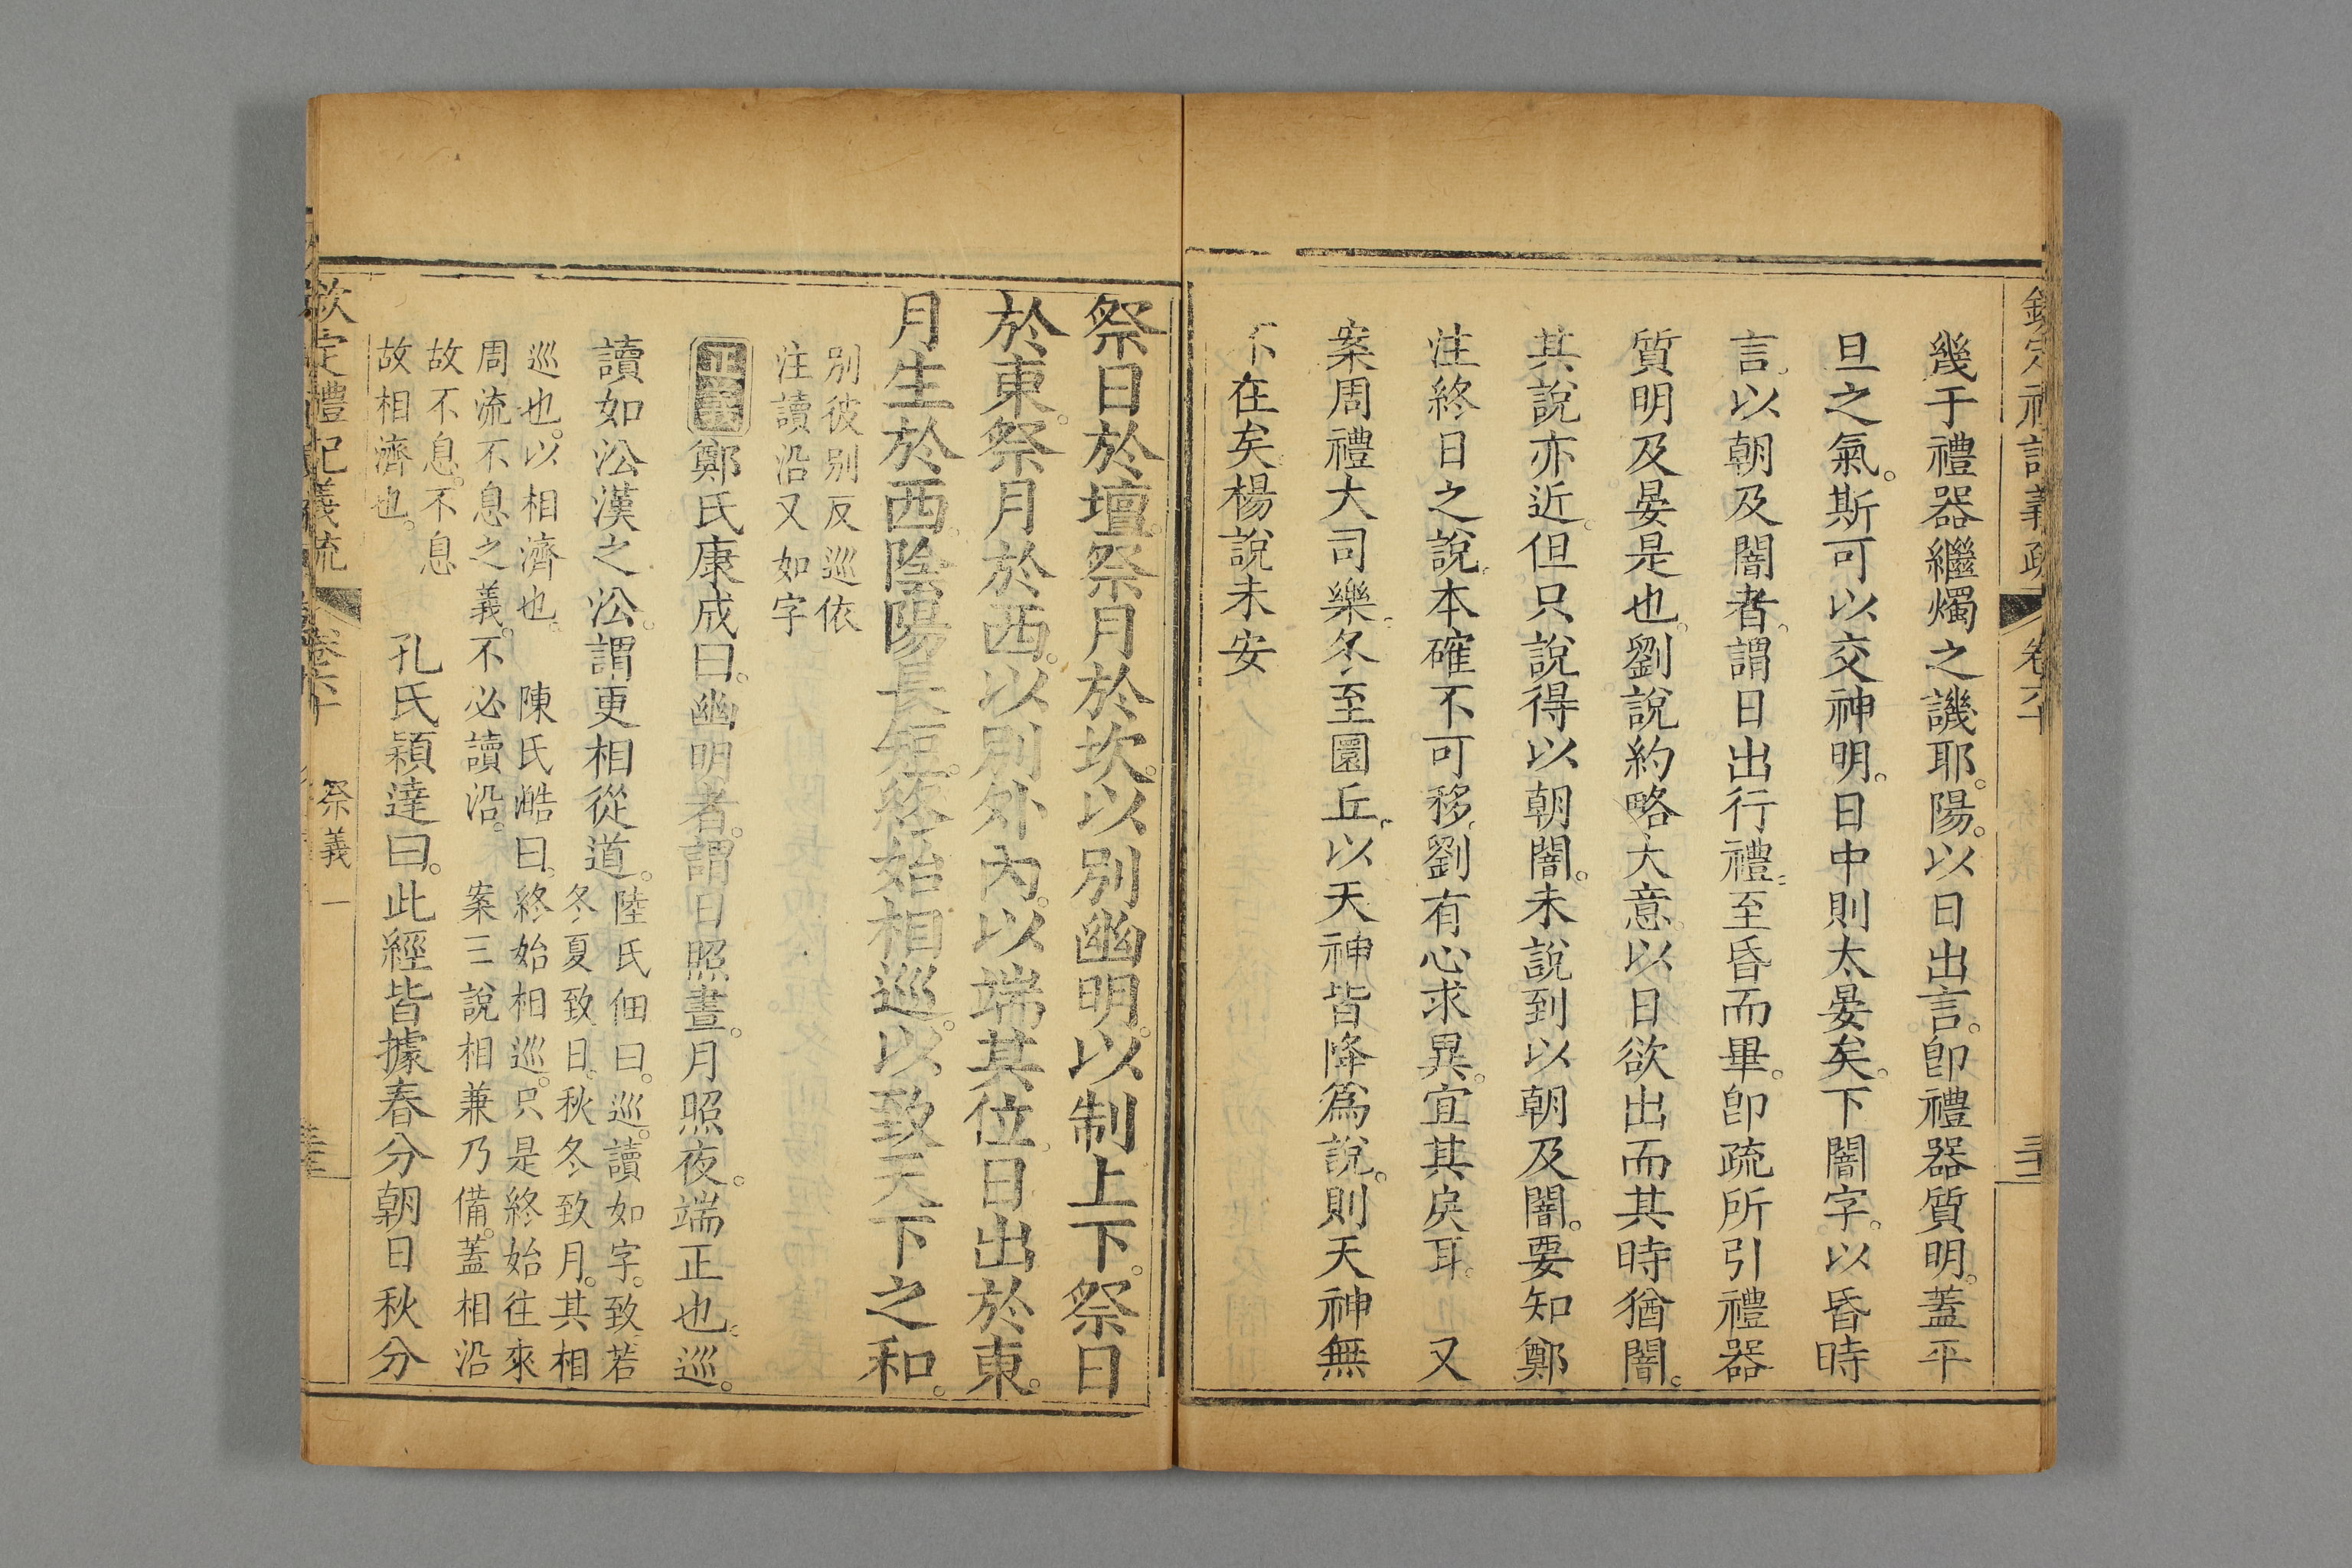 幾于禮器繼燭之譏耶。陽。以日出言。卽禮器質明。蓋平
旦之氣。斯可以交神明。日中則太晏矣。下闇字。以昏時
言。以朝及闇者。謂日出行禮。至昏而畢。卽疏所引禮器
質明及晏是也。劉說約略大意。以日欲出而其時猶闇。
其說亦近。但只說得以朝闇。未說到以朝及闇。要知鄭
注終日之說。本確不可移。劉有心求異。宜其戾耳。又
案周禮大司樂。冬至圜丘。以天神皆降爲說。則天神無
不在矣。楊說未安
祭日於壇。祭月於坎。以別幽明。以制上下。祭日
於東。祭月於西。以別外內。以端其位。日出於東。
月生於西。陰陽長短。終始相巡。以致天下之和。
別彼別反巡依
注讀沿又如字
正義鄭氏康成曰。幽明者。謂日照晝。月照夜。端正也。巡。
讀如沿漢之沿。謂更相從道。
陸氏佃曰。巡。讀如字。致若
冬夏致日。秋冬致月。其相
巡也。以相濟也。陳氏澔曰。終始相巡。只是終始往來
周流不息之義。不必讀沿。案三說相兼乃備。蓋相沿
故不息。不息
故相濟也。
孔氏穎達曰。此經皆據春分朝日秋分
欽定禮記義疏
祭義一